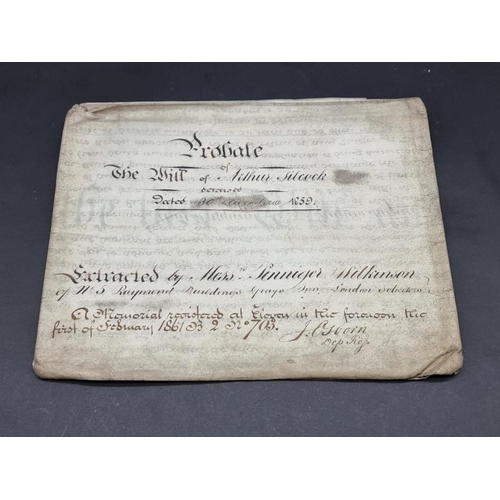 Probate
of
The Will of Arthur Silcock
deceased
Dated 30th 1859.
Extracted by Messrs Wilkinson
of No 5 Raymond Buildings Grays Inn London Solicitors
A Memorial registered at Eleven in the forenoon the
first of February 1861 B 2 No 703.
J. Osborn
Dep Reg